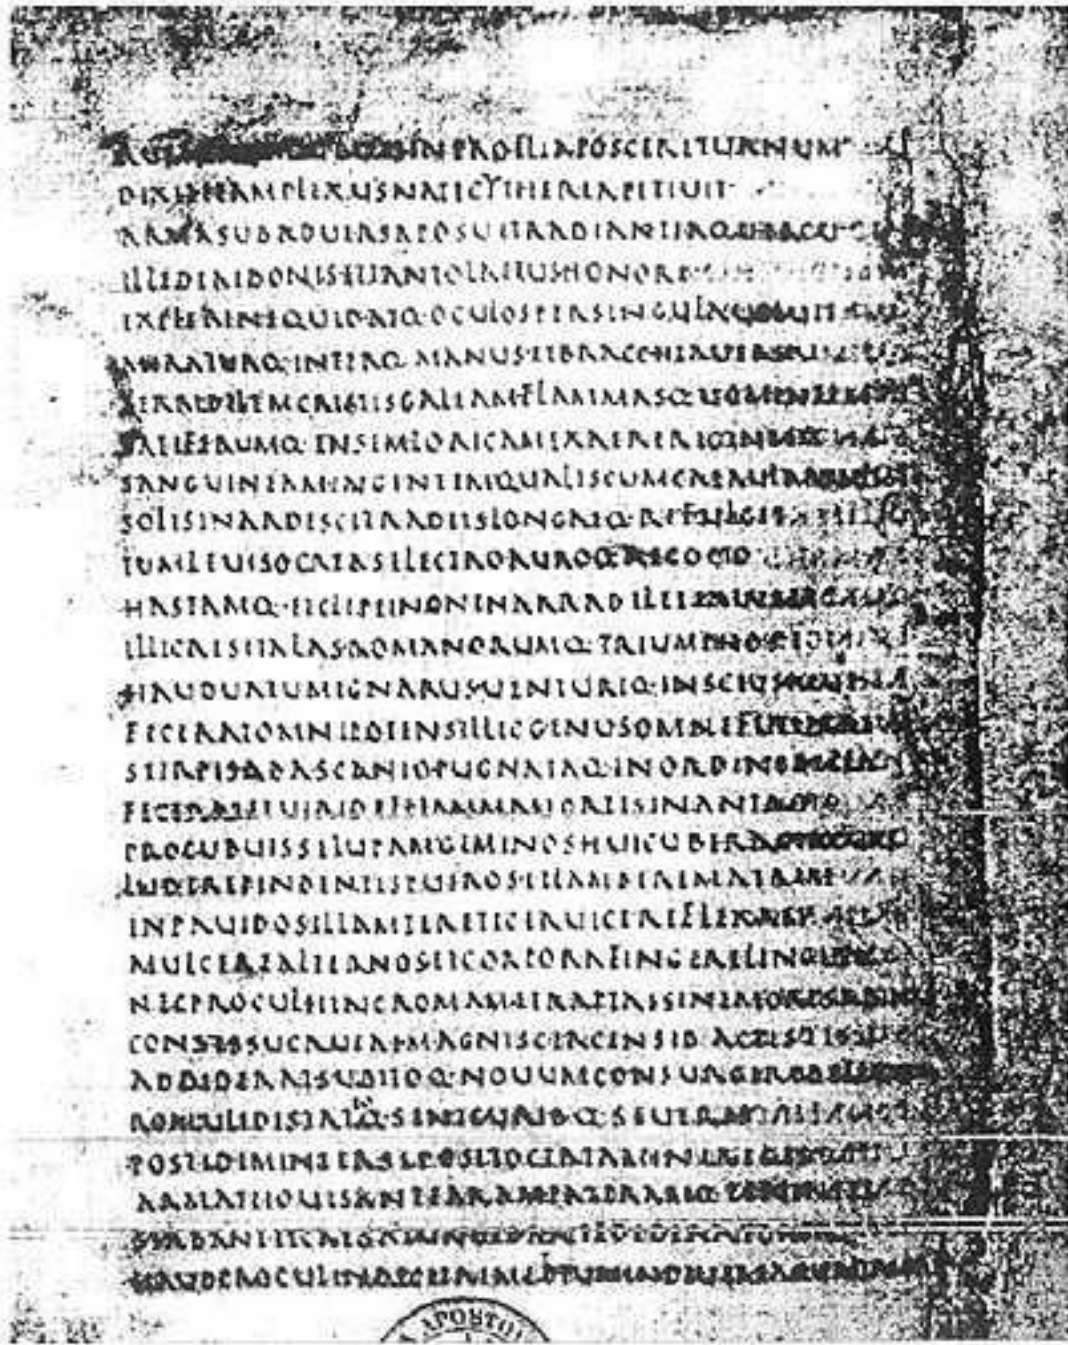 INPROELIAPOSCERETURNUM
DIXITETAMPLEXUSNATICYTHEREAPETIUIT
ARMASUBADUERSAPOSUITRADIANTIAQUERCU
ILLEDEAEDONISETTANTOLAETUSHONORE
EXPLERINEQUITATQ·OCULOSPERSINGULA
MIRATURQ·INTERQ·MANUSETBRACCHIAUERSAT
TERRIBILEMCRISTISGALEAMFLAMMASQ·UOMENTEM
FATIFERUMQ·ENSEMLORICAMEXAERERIGENTEM
SANGUINEAMINGENTEMQUALISCUMCAERULA
SOLISINARDESCITRADIISLONGEQ·REFULGET
TUMLEUISOCREASELECTROAUROQ·RECOCTO
HASTAMQ·ETCLIPEINONENARRABILETEXTUM
ILLICRESITALASROMANORUMQ·TRIUMPHOS
HAUDUATUMIGNARUSUENTURIQ·INSCIUSAEUI
FECERATOMNIPOTENSILLICGENUSOMNEFUTURAE
STIRPISABASCANIOPUGNATAQ·INORDINEBELLA
FECERATETUIRIDIFETAMMAUORTISINANTRO
PROCUBUISSELUPAMGEMINOSHUICUBERA
LUDEREPENDENTISPUEROSETLAMBEREMATREM
INPAUIDOSILLAMTERETICERUICEREFLEXAM
MULCEREALTERNOSETCORPORAFINGERELINGUA
NECPROCULHINCROMAMETRAPTASSINEMORESABINAS
CONSESSUCAUEAEMAGNISCIRCENSIB·ACTIS
ADDIDERATSUBITOQ·NOUUMCONSURGEREBELLUM
ROMULIDISTATIOQ·SENICURIBQ·SEUERIS
POSTIDEMINTERSEPOSITOCERTAMINEREGES
ARMATIIOUISANTEARAMPATERASQ·TENENTES
STABANTETCAESA
HAUDPROCULINDE
APOSTO